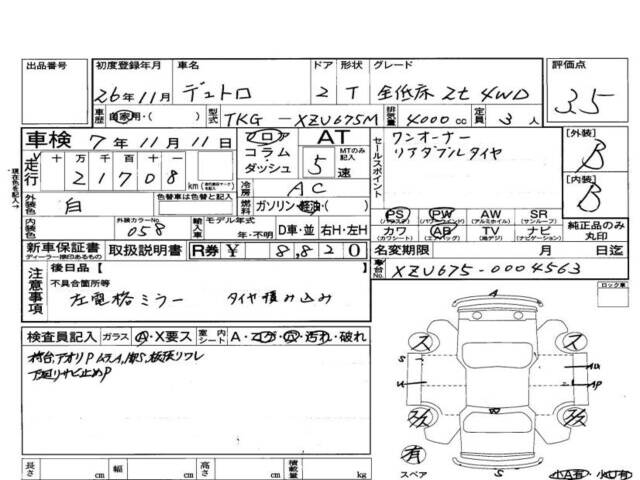 出品番号 初度登録年月 車名 ドア 形状 グレード 評価点
26年11月 デュトロ 2 T 全低床 2t 4WD 3.5
車歴 自家用・( ) 型式 TKG-XZU675M 排気量 4000cc 定員 3人
車検 7年11月11日 フロア コラム ダッシュ AT 5速 MTのみ記入
セールスポイント ワンオーナー
リアダブルタイヤ
[外装] B
[内装] B
現在色を記入→
走行 十 万 千 百 十 一
21708 km
冷房 AC
外装色 白 色替車は色替と記入 燃料 ガソリン・軽油・( )
PS (パワステ) PW (パワーウインド) AW (アルミホイル) SR (サンルーフ)
カワ (カワシート) AB (エアバッグ) TV (地デジ) ナビ (ナビゲーション)
純正品のみ丸印
内装色 外装カラーNo. 058 輸入車 モデル年式 年・不明 D車・並 右H・左H
新車保証書 ディーラー捺印あるもの 取扱説明書 R券 ¥ 8,820
名変期限 月 日迄
車台No. XZU675-0004563
注意事項 後日品 [
不具合箇所等
左電格ミラー タイヤ積み込み
ロック車
検査員記入 ガラス A・X要ス 室内シート A・コゲ・穴・汚れ・破れ
荷台,アオリP
下廻りサビ止めP
A
ス ス
S
U
AU
AP
W
有
スペア
S
小A有・小U有
長さ cm 幅 cm 高さ cm 積載量 kg